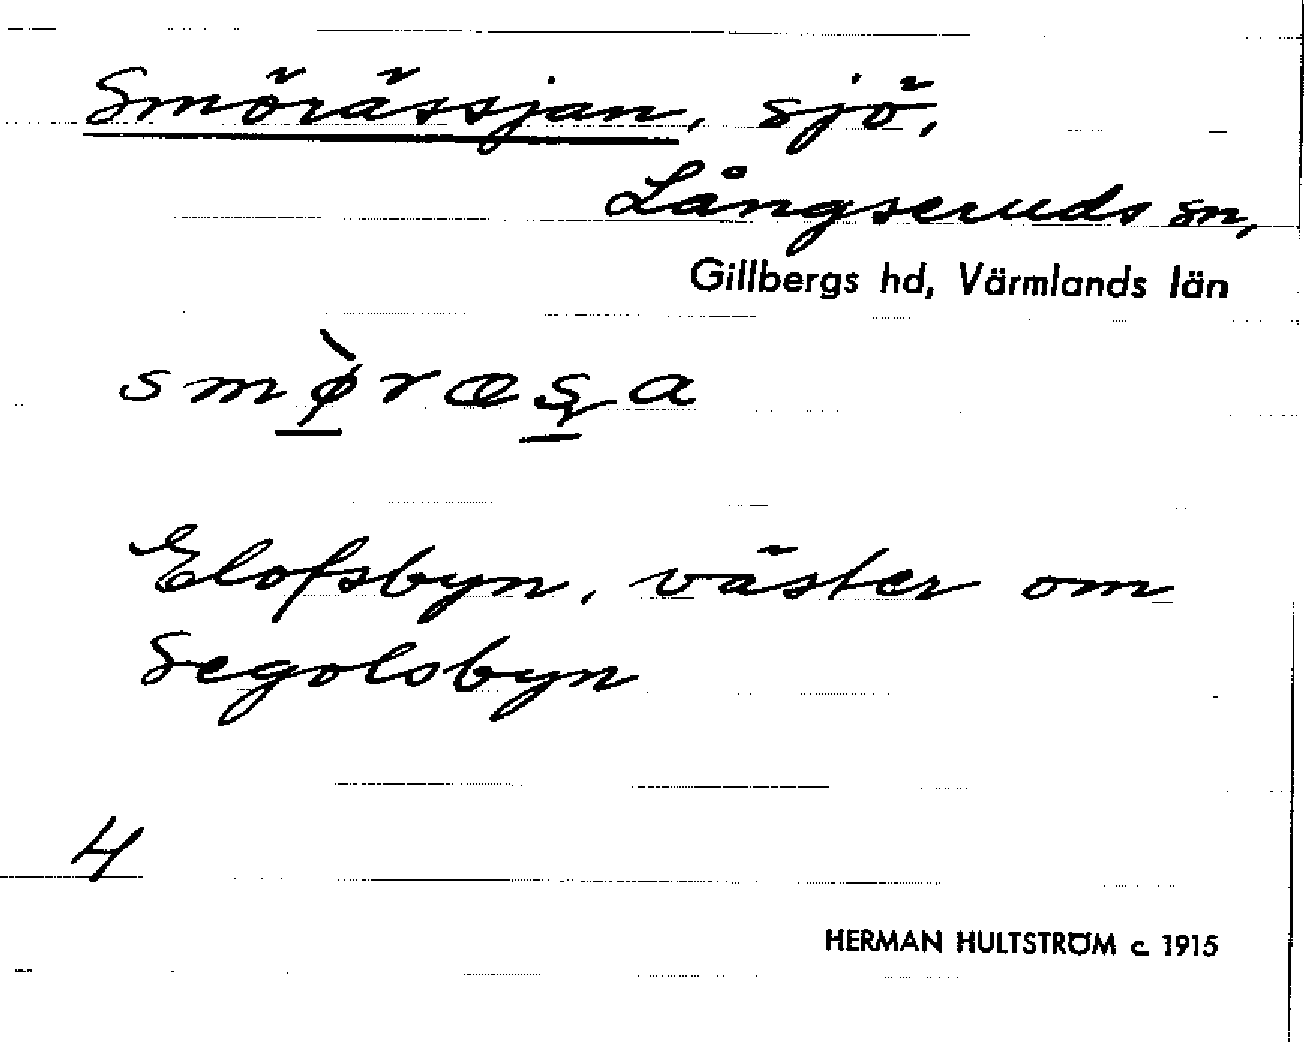 Smörässjan, sjö,
Långseruds sn,
Gillbergs hd, Värmlands län
smø̀ræʂa
Elofsbyn, väster om
Segolsbyn
4
HERMAN HULTSTRÖM c. 1915